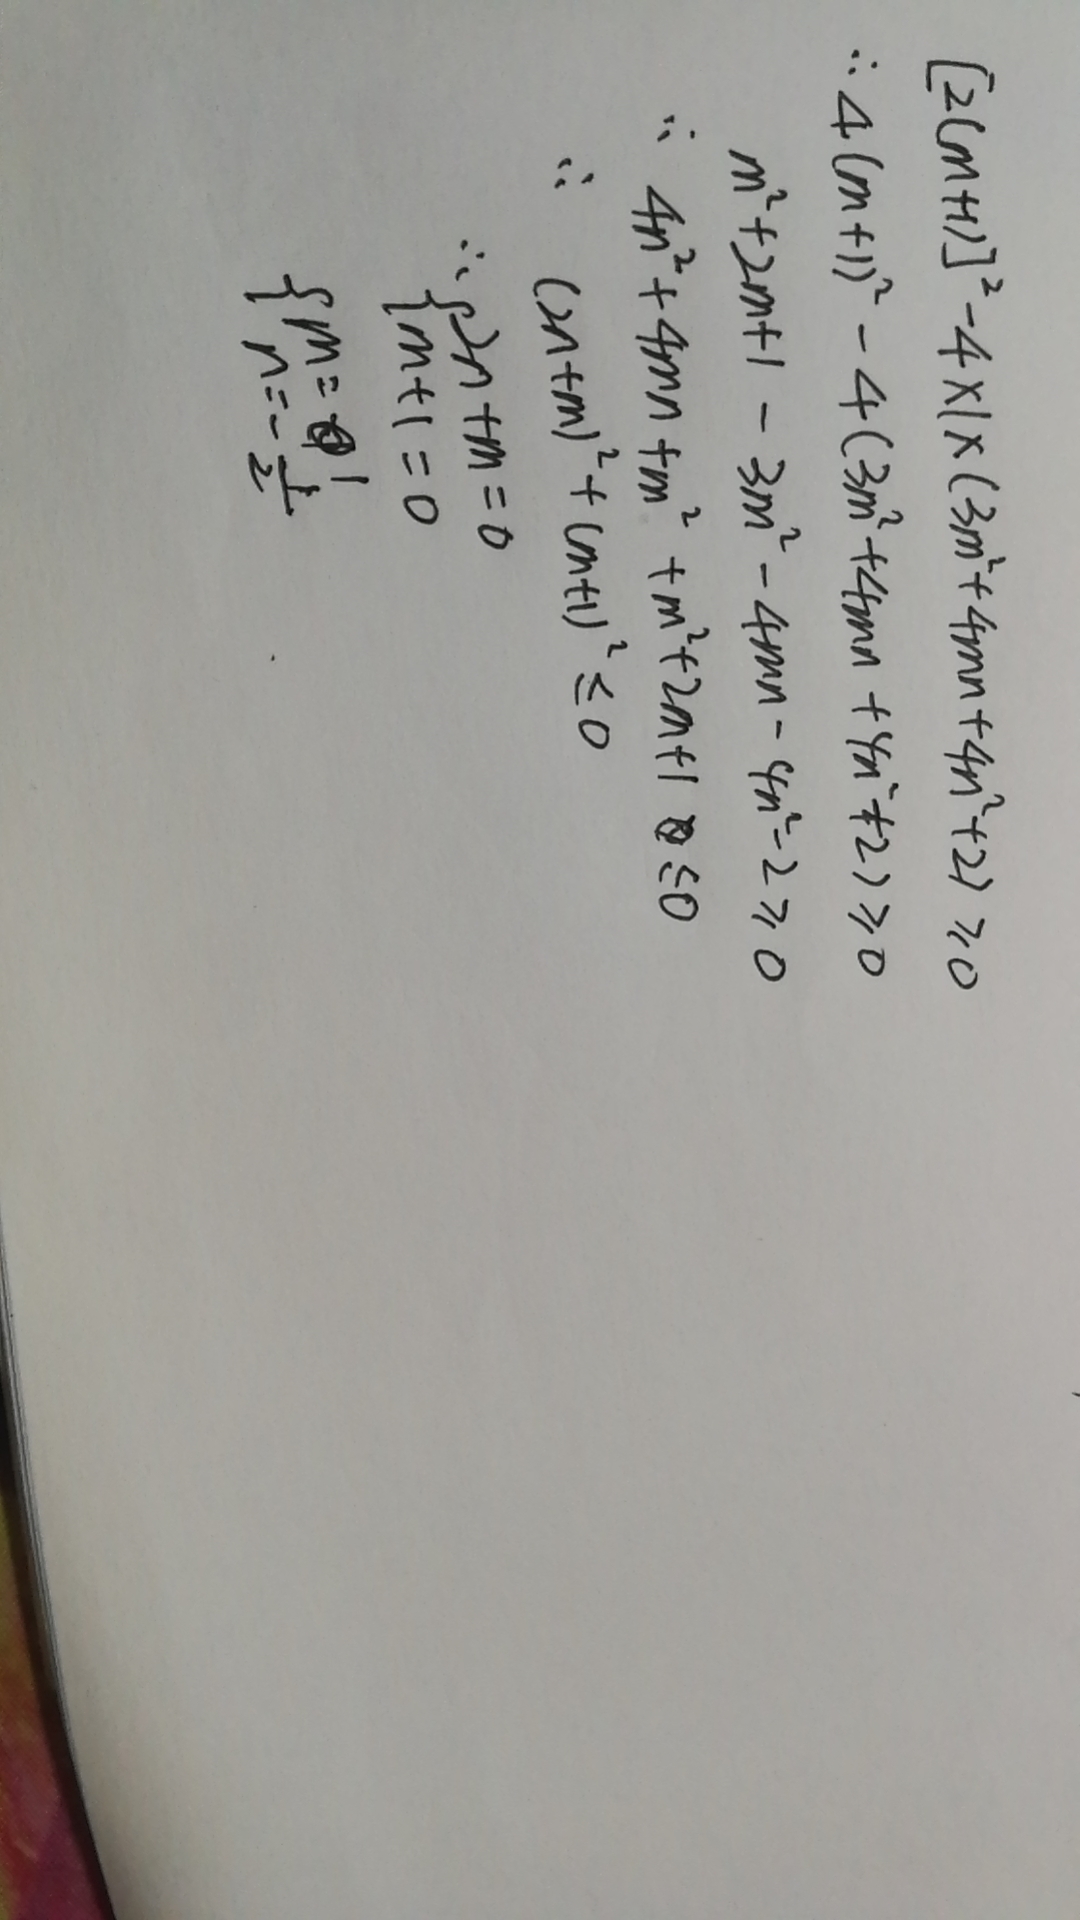 [2(m+1)]²-4×1×(3m²+4mn+4n²+2)≥0
∴4(m+1)²-4(3m²+4mn+4n²+2)≥0
m²+2m+1-3m²-4mn-4n²-2≥0
∴ 4n²+4mn+m²+m²+2m+1≤0
∴ (2n+m)²+(m+1)²≤0
∴{2n+m=0
{m+1=0
{m=1
n=-1/2